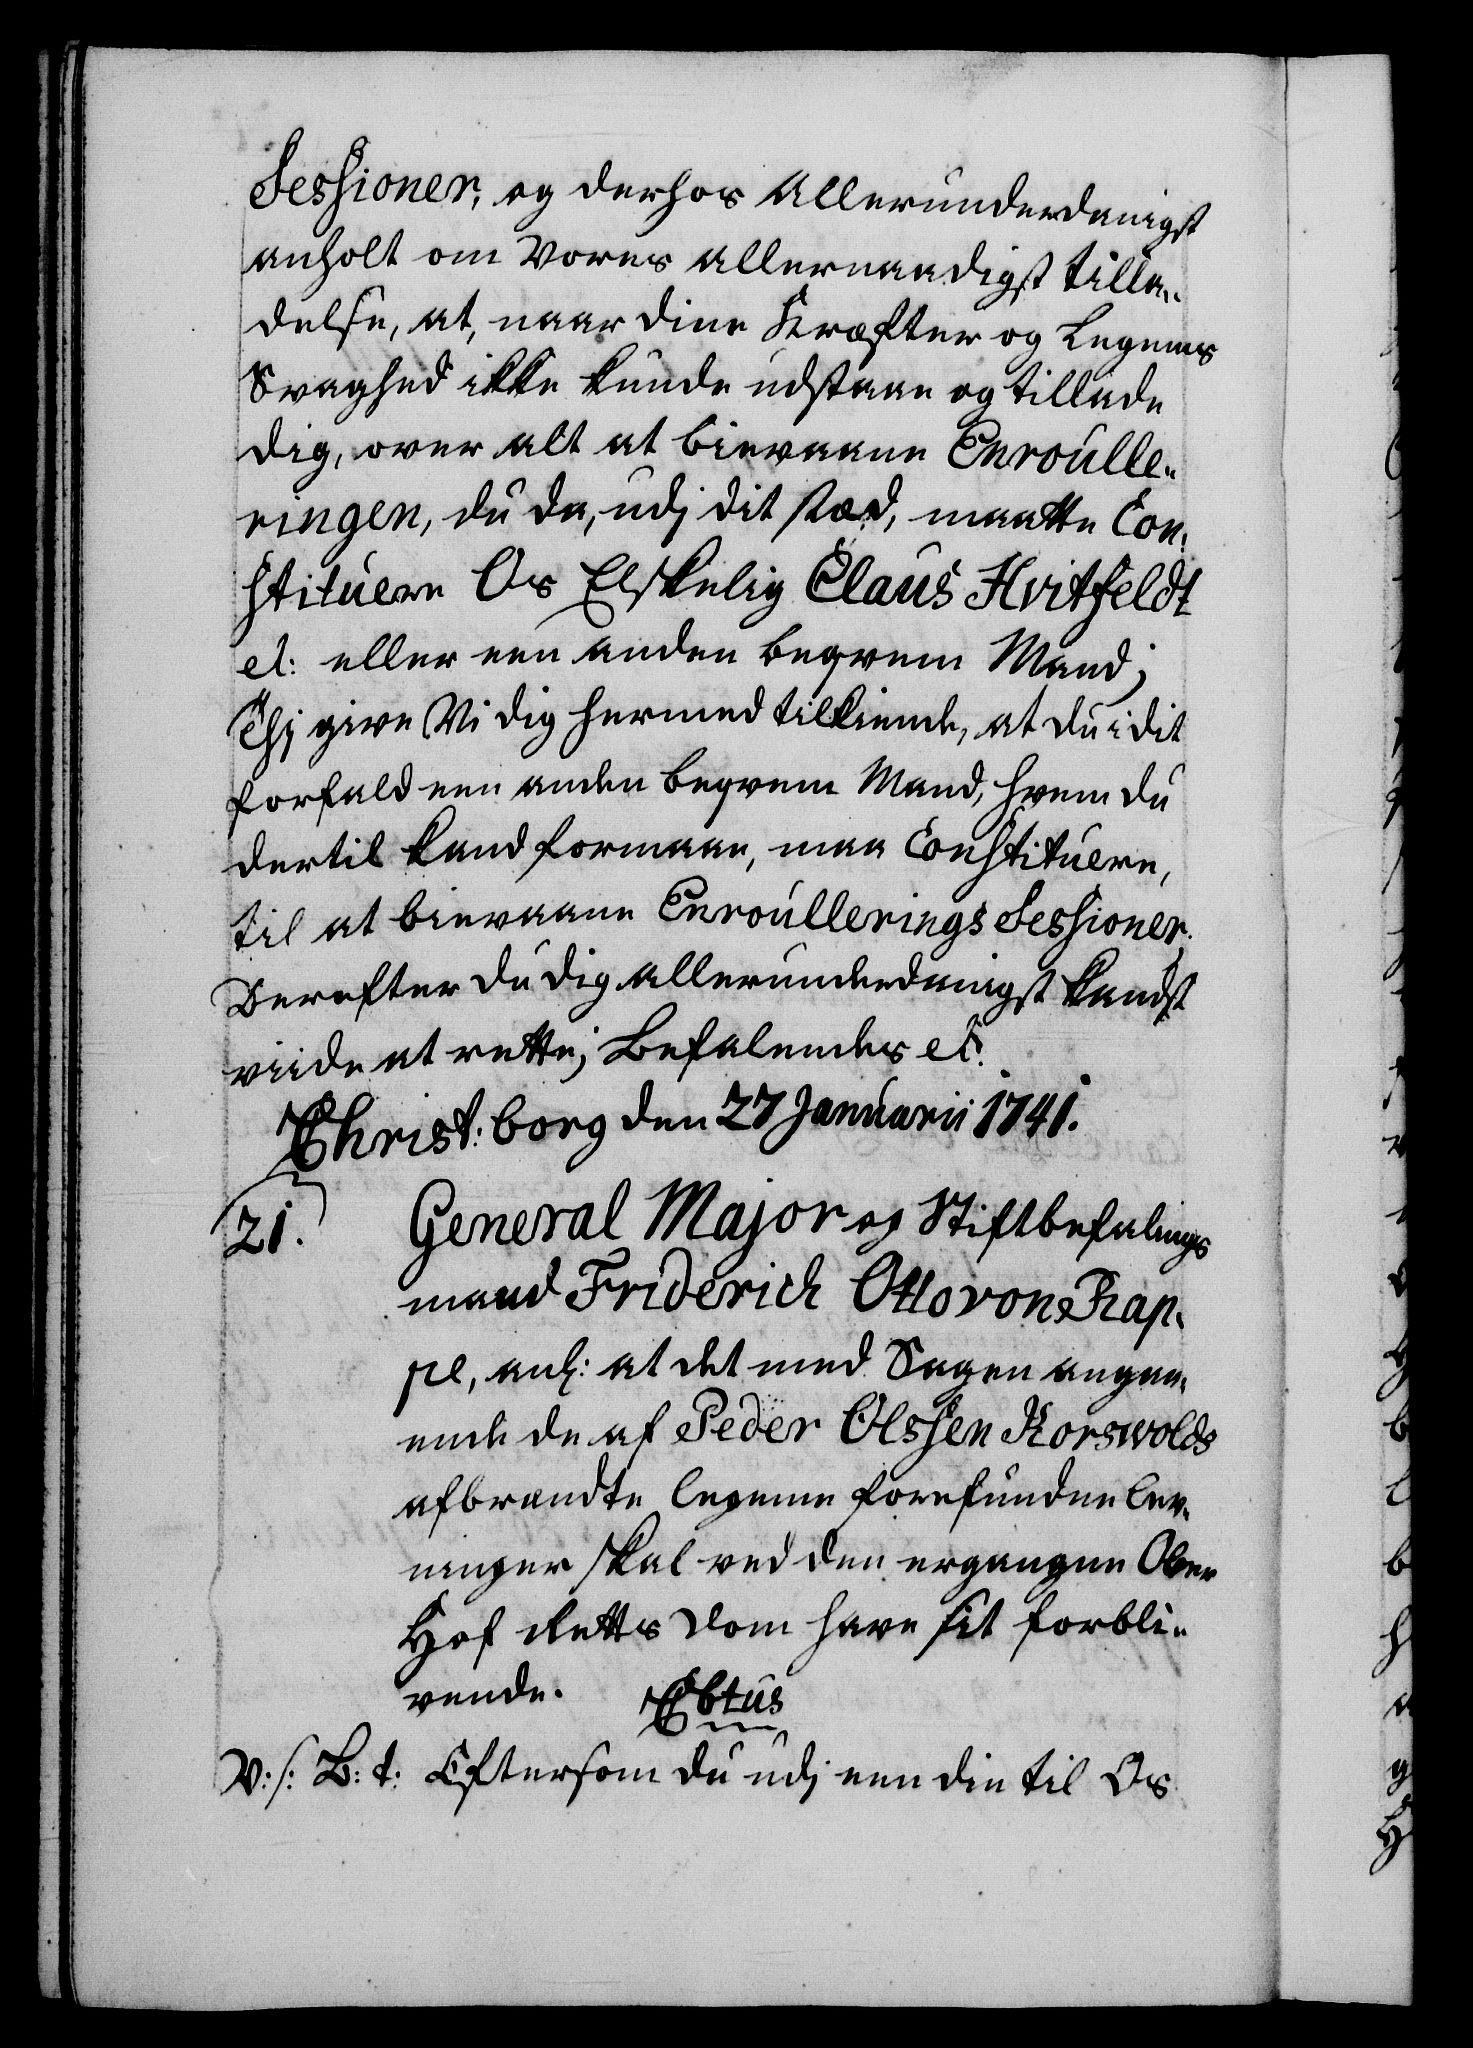 Sessioner, og derhos Allerunderdanigst
anholt om Vores Allernaadigst Tilla-
delse, at, naar dine Kræfter og Legems
Svaghed ikke kunde udstaae og tillade
dig, over alt at bievaane Enroulle-
ringen, du da, udj dit stæd, maatte Con-
stituere Os Elskelig Claus Hvitfeldt
et: eller een anden beqvem Mand;
Thj give Vi dig hermed tilkiende, at du i dit
forfald een anden beqvem Mand, hvem du
dertil kand formaae, maa Constituere,
til at bievaane Enroullerings Sessioner.
Derefter du dig allerunderdanigst kandst
viide at rette; Befalendes et:
Christ: borg den 27 Januarii 1741.
21. General Major og Stiftbefalings
mand Friderich Otto von Rap-
pe, anl: at det med Sagen angaa-
ende de af Peder Olssen Korswolds
afbrændte legeme forefundne lev-
ninger skal ved den ergangne Ober
Hof Retts Dom have sit forbli-
vende. Ebtus
V: s: B: t: Eftersom du udj een din til Os